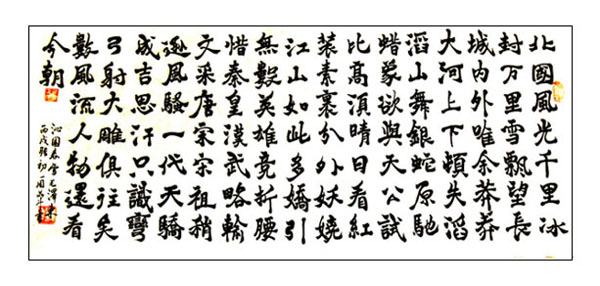 北國風光千里冰
封万里雪飄望長
城内外唯余莽莽
大河上下頓失滔
滔山舞銀蛇原馳
蜡象欲與天公試
比高須晴日看紅
装素裹分外妖嬈
江山如此多嬌引
無數英雄竞折腰
惜秦皇漢武略輸
文采唐宗宋祖稍
遜風騷一代天驕
成吉思汗只識彎
弓射大雕俱往矣
數風流人物還看
今朝
沁园春雪毛澤東
丙戌